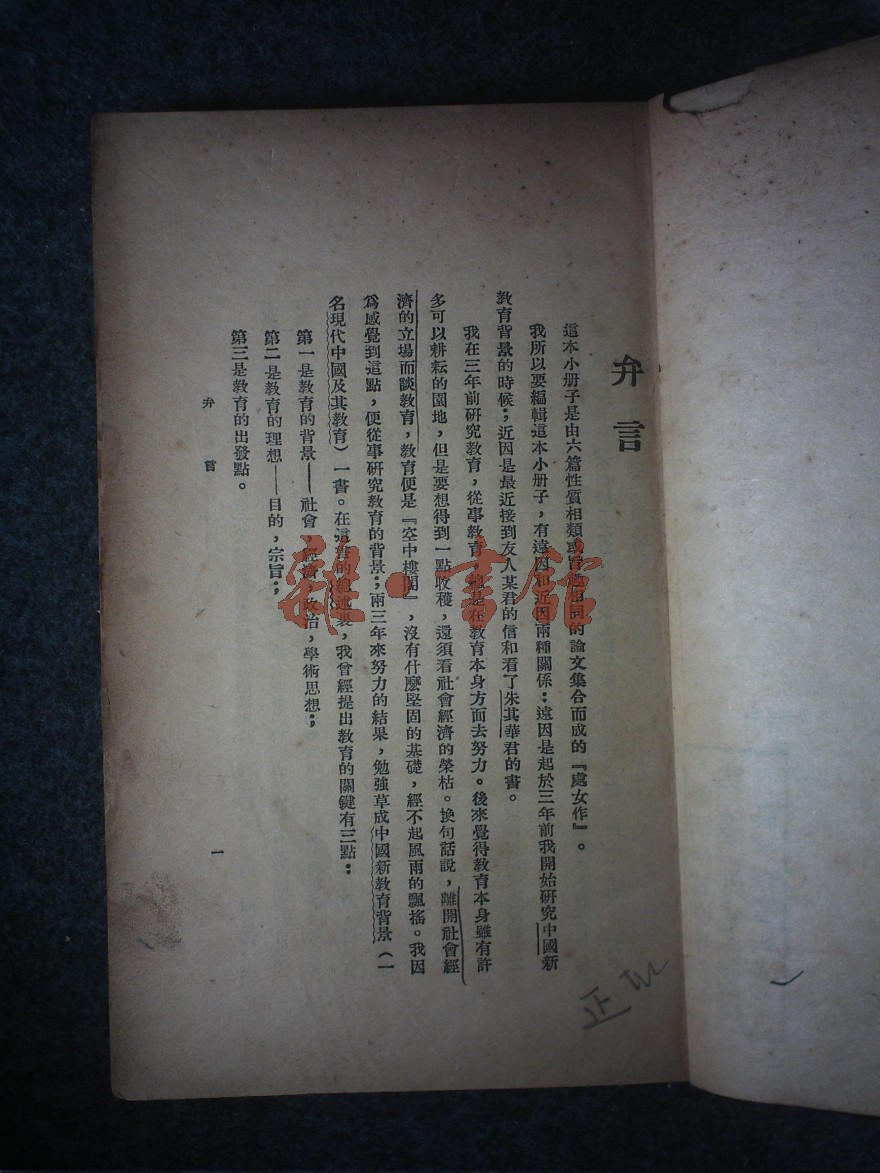 弁言
這本小册子是由六篇性質相類或旨趣相同的論文集合而成的『處女作』。
我所以要編輯這本小册子，有遠因和近因兩種關係：遠因是起於三年前我開始研究中國新
教育背景的時候；近因是最近接到友人某君的信和看了朱其華君的書。
我在三年前研究教育，從事教育，總是在教育本身方面去努力。後來覺得教育本身雖有許
多可以耕耘的園地，但是要想得到一點收穫，還須看社會經濟的榮枯。換句話說，離開社會經
濟的立場而談教育，教育便是『空中樓閣』，沒有什麼堅固的基礎，經不起風雨的飄搖。我因
爲感覺到這點，便從事研究教育的背景；兩三年來努力的結果，勉強草成中國新教育背景（一
名現代中國及其教育）一書。在這書的總述裏，我曾經提出教育的關鍵有三點：
第一是教育的背景——社會，經濟，政治，學術思想；
第二是教育的理想——目的，宗旨；
第三是教育的出發點。
弁言
一
雜·書館